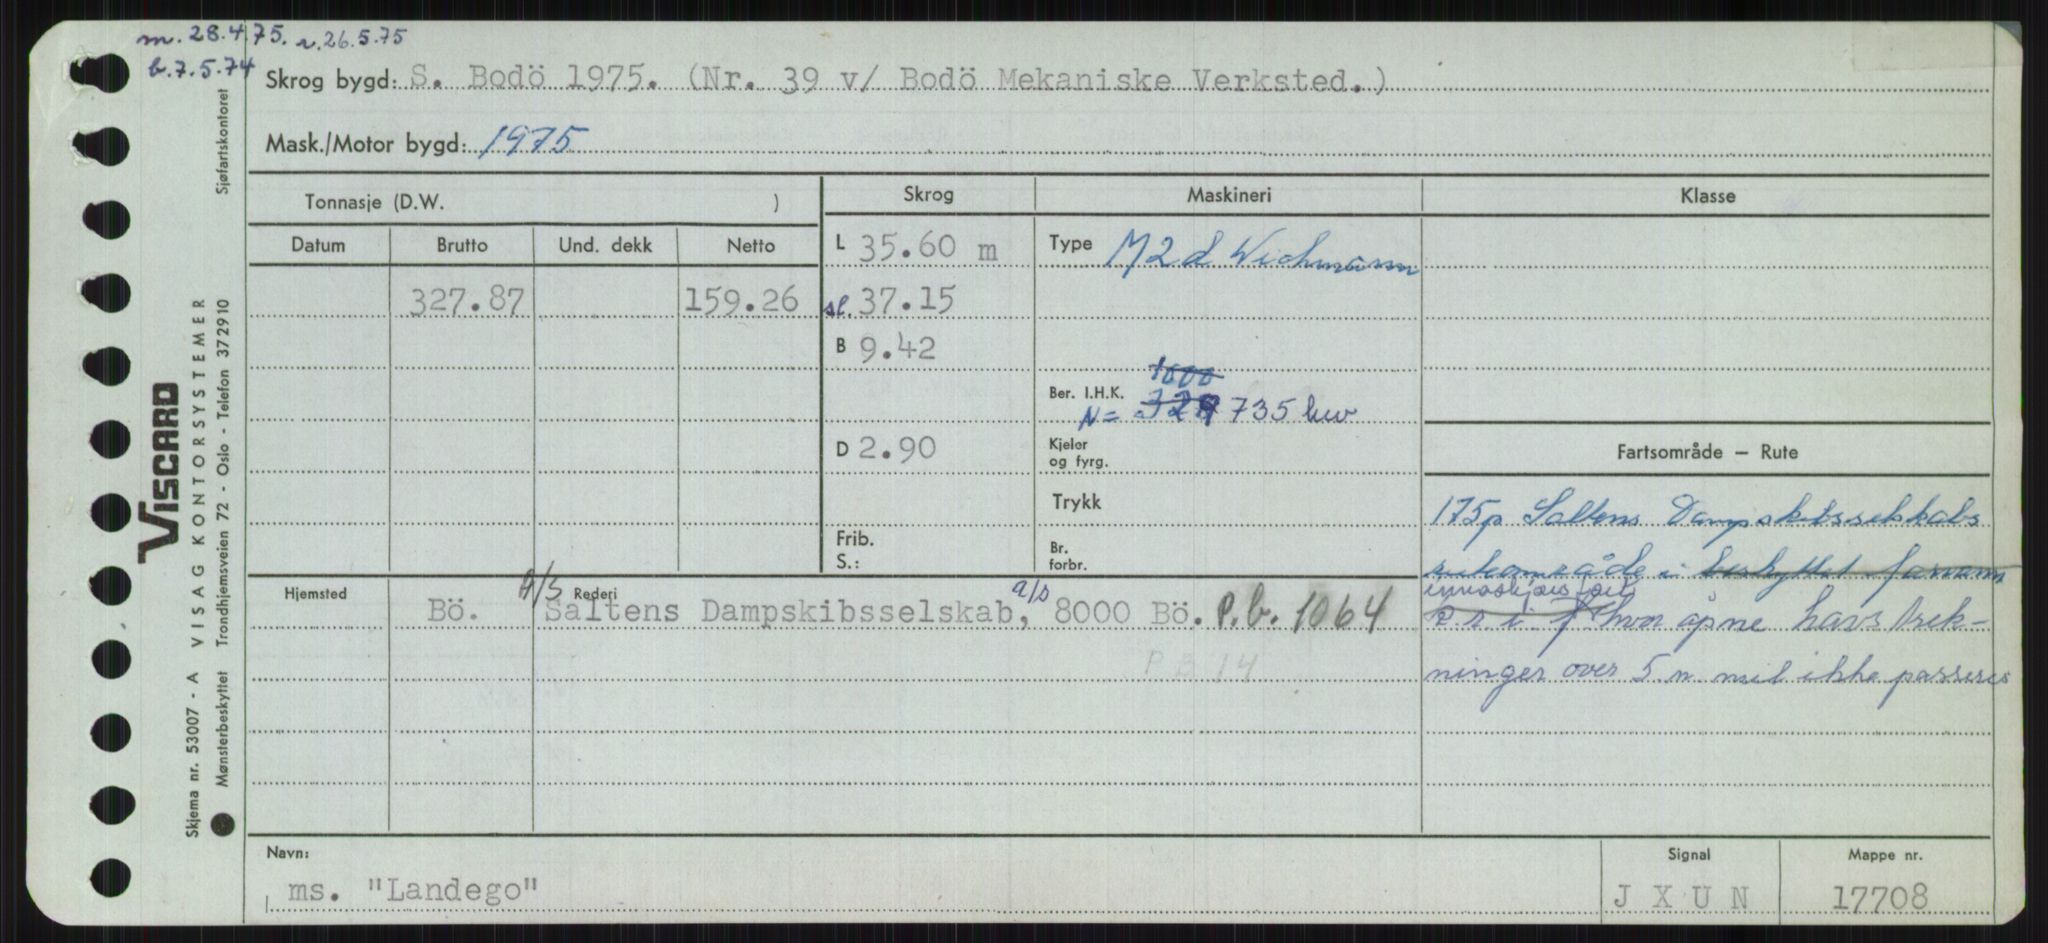 m. 28.4.75. r. 26.5.75
b. 7.5.74
Skrog bygd: S. Bodö 1975. (Nr. 39 v/ Bodö Mekaniske Verksted.)
Mask./Motor bygd: 1975
Tonnasje (D.W. )
Skrog
Maskineri
Klasse
Datum
Brutto
Und. dekk
Netto
L 35.60 m
Type M2d Wichmann
327.87
159.26
sl. 37.15
B 9.42
1000
Ber. I.H.K.
N = 329 735 kw
D 2.90
Kjeler
og fyrg.
Fartsområde — Rute
Trykk
175p Saltens Dampskibsselskabs
Frib.
S.:
Br.
forbr.
ruteområde i beskyttet farvann
Hjemsted
Rederi
innaskjærs fart
Bö. A/S Saltens Dampskibsselskab, a/s 8000 Bö. P.b. 1064
hvor åpne havstrek-
P B 14
ninger over 5 n mil ikke passeres
Navn:
ms. "Landego"
Signal
J X U N
Mappe nr.
17708
VISCARD
Skjema nr. 53007 - A VISAG KONTORSYSTEMER
Mønsterbeskyttet Trondhjemsveien 72 - Oslo - Telefon 372910 Sjøfartskontoret